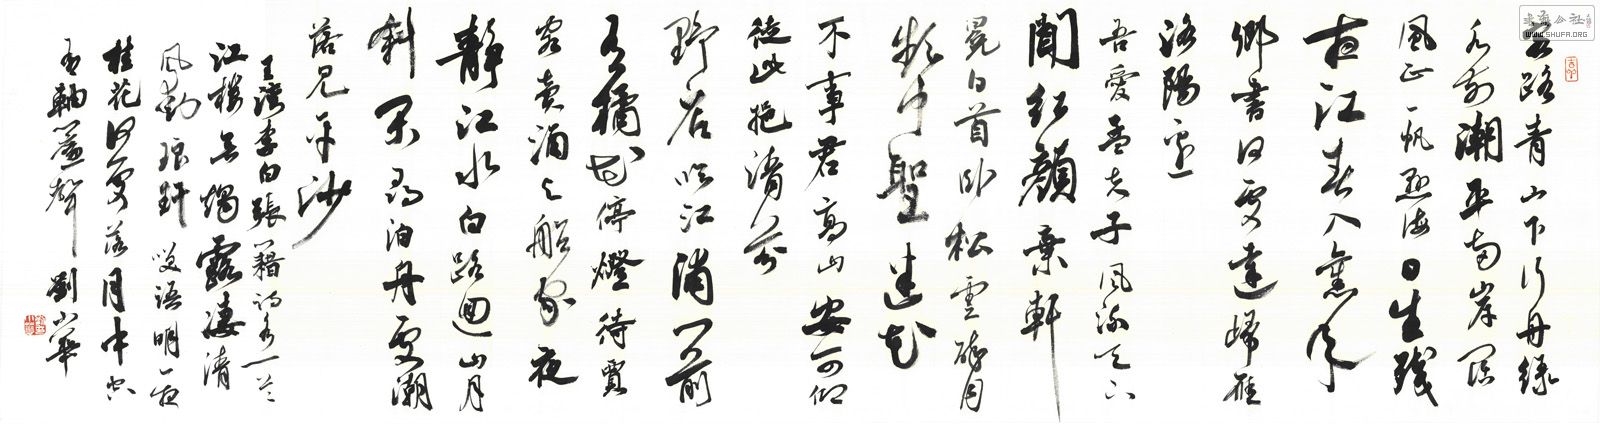 客路青山下行舟綠
水前潮平兩岸闊
風正一帆懸海日生殘
夜江春入舊年
鄉書何處達歸雁
洛陽邊
吾愛孟夫子風流天下
聞紅顏棄軒
冕白首卧松雲醉月
頻中聖迷花
不事君高山安可仰
徒此挹清芬
野店臨江浦門前
有橘花停燈待賈
客賣酒與船家夜
靜江水白路迴山月
斜閑尋泊舟處潮
落見平沙
王灣李白張籍詩各一首
江樓無燭露凄清
風動琅玕笑語明一夜
桂花何處落月中空
有軸簾聲 劉小華
书法公社
WWW.SHUFA.ORG